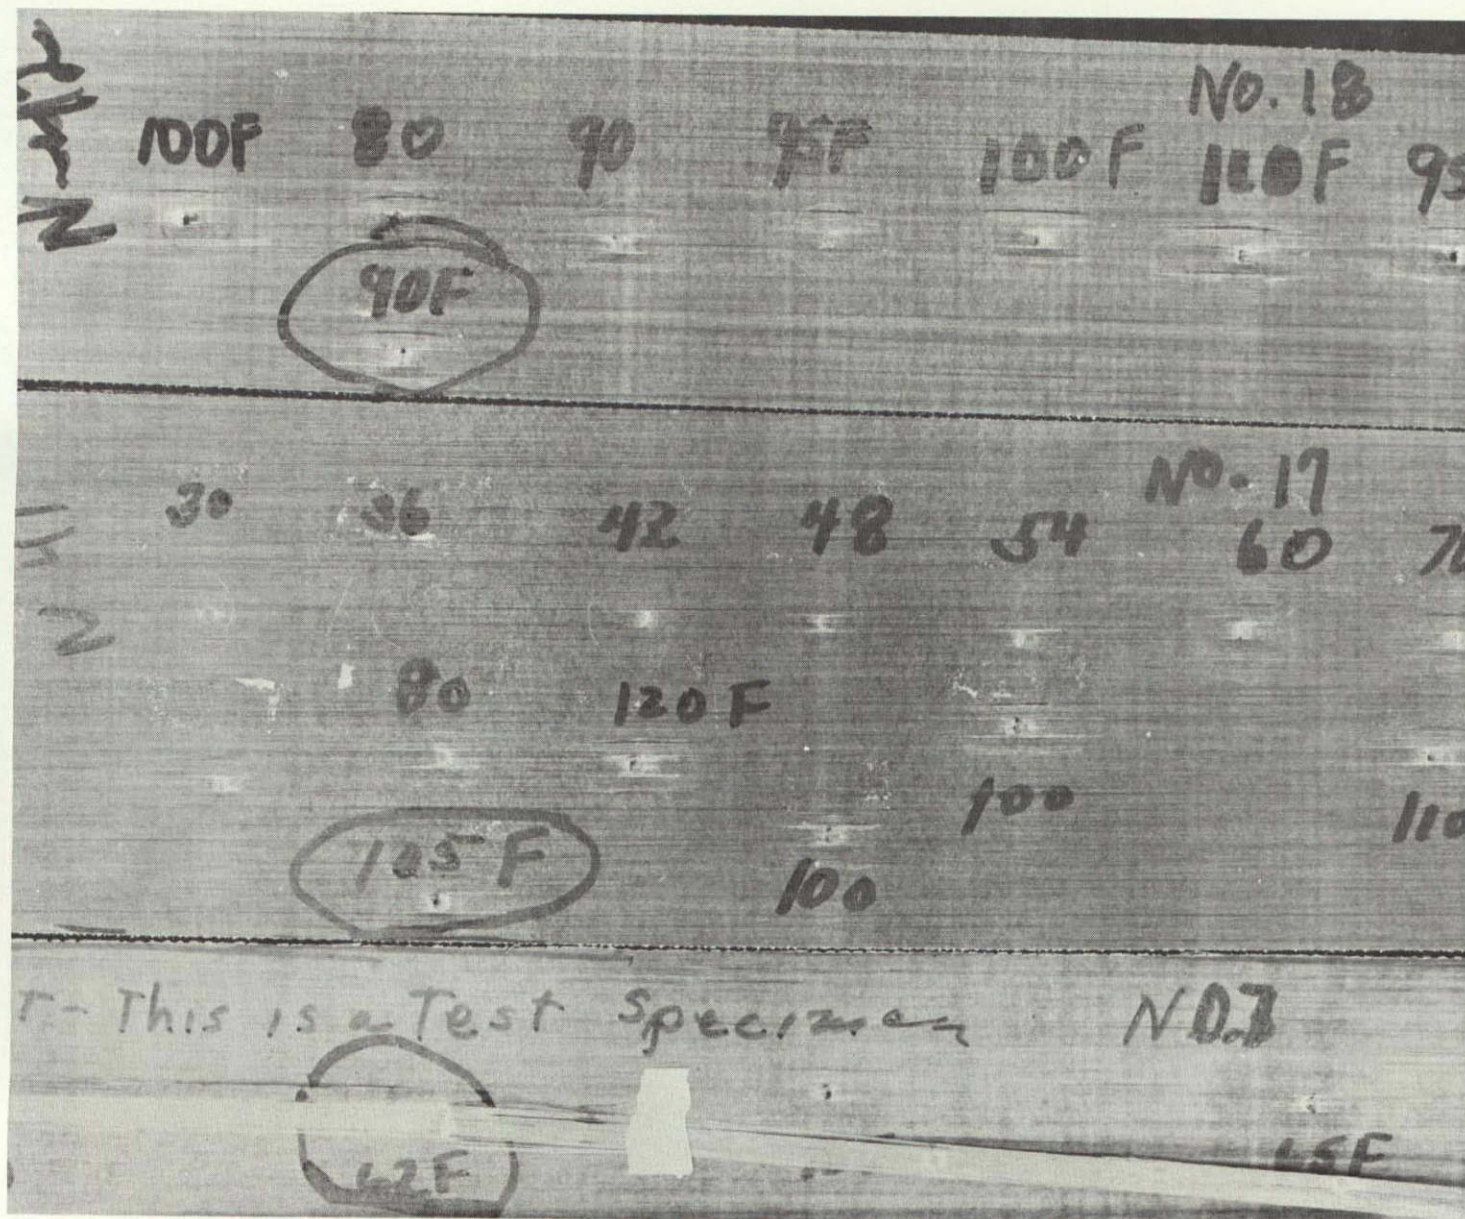 No. 18
100F 80 90 95F 100F 110F 95
90F
No. 17
30 36 42 48 54 60 70
80 120F
100 110
105F
100
T- This is a Test Specimen No.7
62F 65F